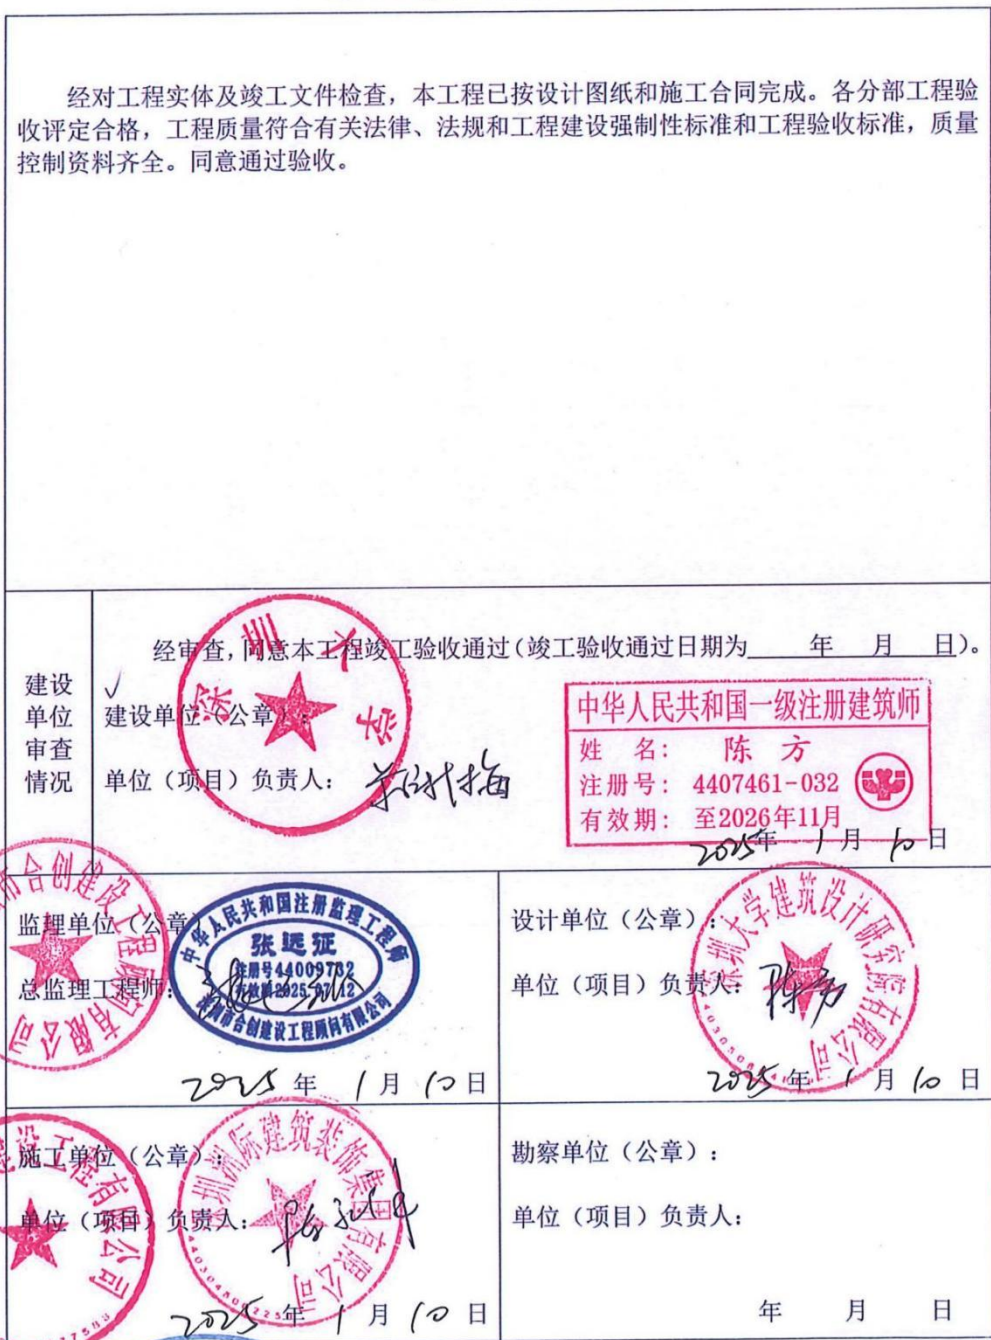 经对工程实体及竣工文件检查，本工程已按设计图纸和施工合同完成。各分部工程验
收评定合格，工程质量符合有关法律、法规和工程建设强制性标准和工程验收标准，质量
控制资料齐全。同意通过验收。
建设
单位
审查
情况
经审查，同意本工程竣工验收通过（竣工验收通过日期为 年 月 日）。
√
建设单位（公章）：
深圳大学
单位（项目）负责人：
中华人民共和国一级注册建筑师
姓 名： 陈 方
注册号： 4407461-032
有效期： 至2026年11月
2025年 1月 10日
监理单位（公章）
市合创建设工程顾问有限公司
总监理工程师：
中华人民共和国注册监理工程师
张远征
注册号44009732
有效期2025.07.12
深圳市合创建设工程顾问有限公司
2025年 1月 10日
设计单位（公章）：
深圳大学建筑设计研究院有限公司
单位（项目）负责人：
陈方
2025年 1月 10日
施工单位（公章）：
建设工程有限公司
深圳洲际建筑装饰集团有限公司
单位（项目）负责人：
2025年 1月 10日
勘察单位（公章）：
单位（项目）负责人：
年 月 日